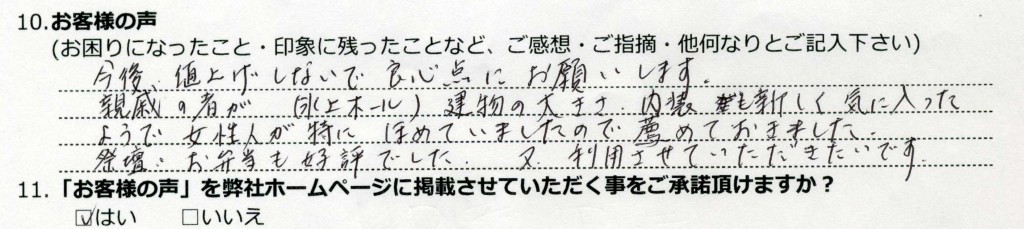 10.お客様の声
(お困りになったこと・印象に残ったことなど、ご感想・ご指摘・他何なりとご記入下さい)
今後、値上げしないで良心点にお願いします。
親戚の者が (氷上ホール) 建物の大きさ、内装も新しく気に入った
ようで女性人が特にほめていましたので薦めておきました。
祭壇、お弁当も好評でした。 又、利用させていただきたいです。
11.「お客様の声」を弊社ホームページに掲載させていただく事をご承諾頂けますか？
☑はい □いいえ